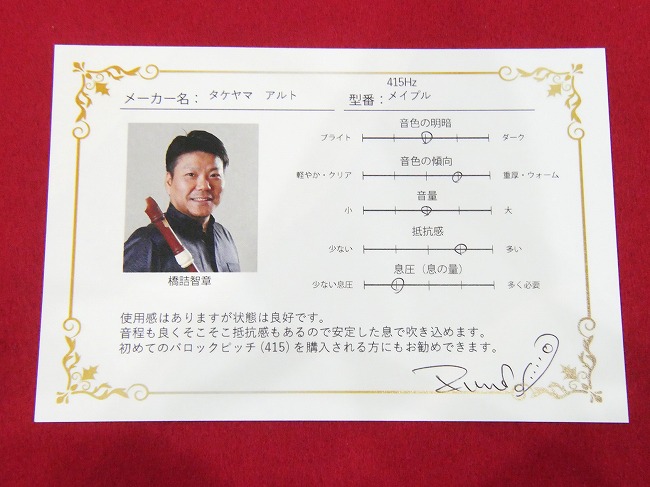 415Hz
メーカー名： タケヤマ アルト 型番：メイプル
音色の明暗
ブライト ダーク
音色の傾向
軽やか・クリア 重厚・ウォーム
音量
小 大
抵抗感
少ない 多い
息圧（息の量）
少ない息圧 多く必要
橋詰智章
使用感はありますが状態は良好です。
音程も良くそこそこ抵抗感もあるので安定した息で吹き込めます。
初めてのバロックピッチ(415)を購入される方にもお勧めできます。